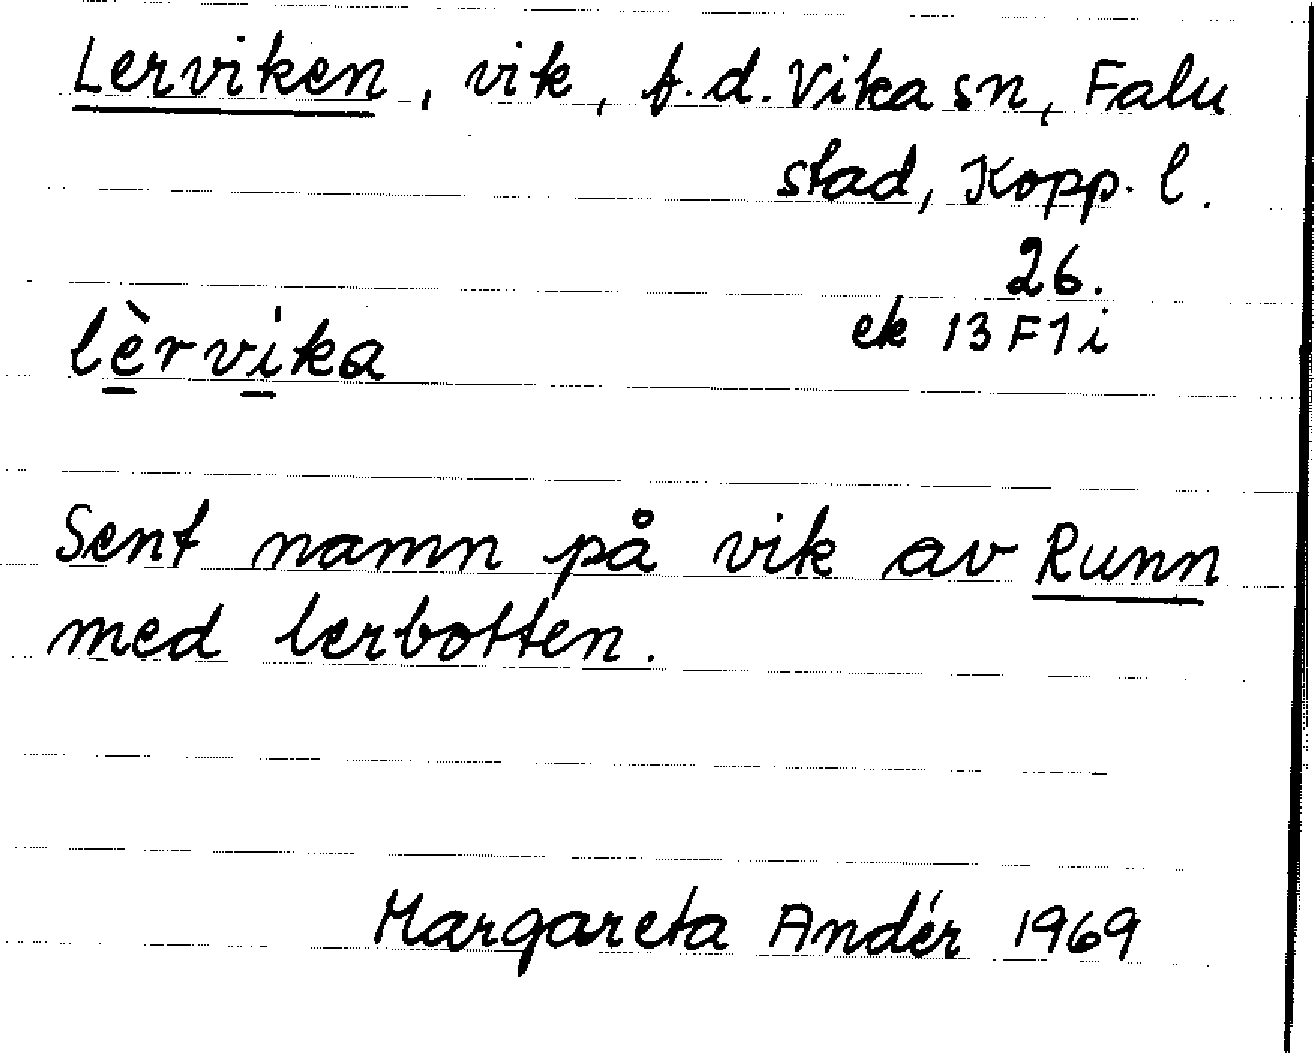 Lerviken, vik, f.d. Vika sn, Falu
stad, Kopp. l.
26.
ek 13 F 1 i
lèrvika
Sent namn på vik av Runn
med lerbotten.
Margareta Andér 1969